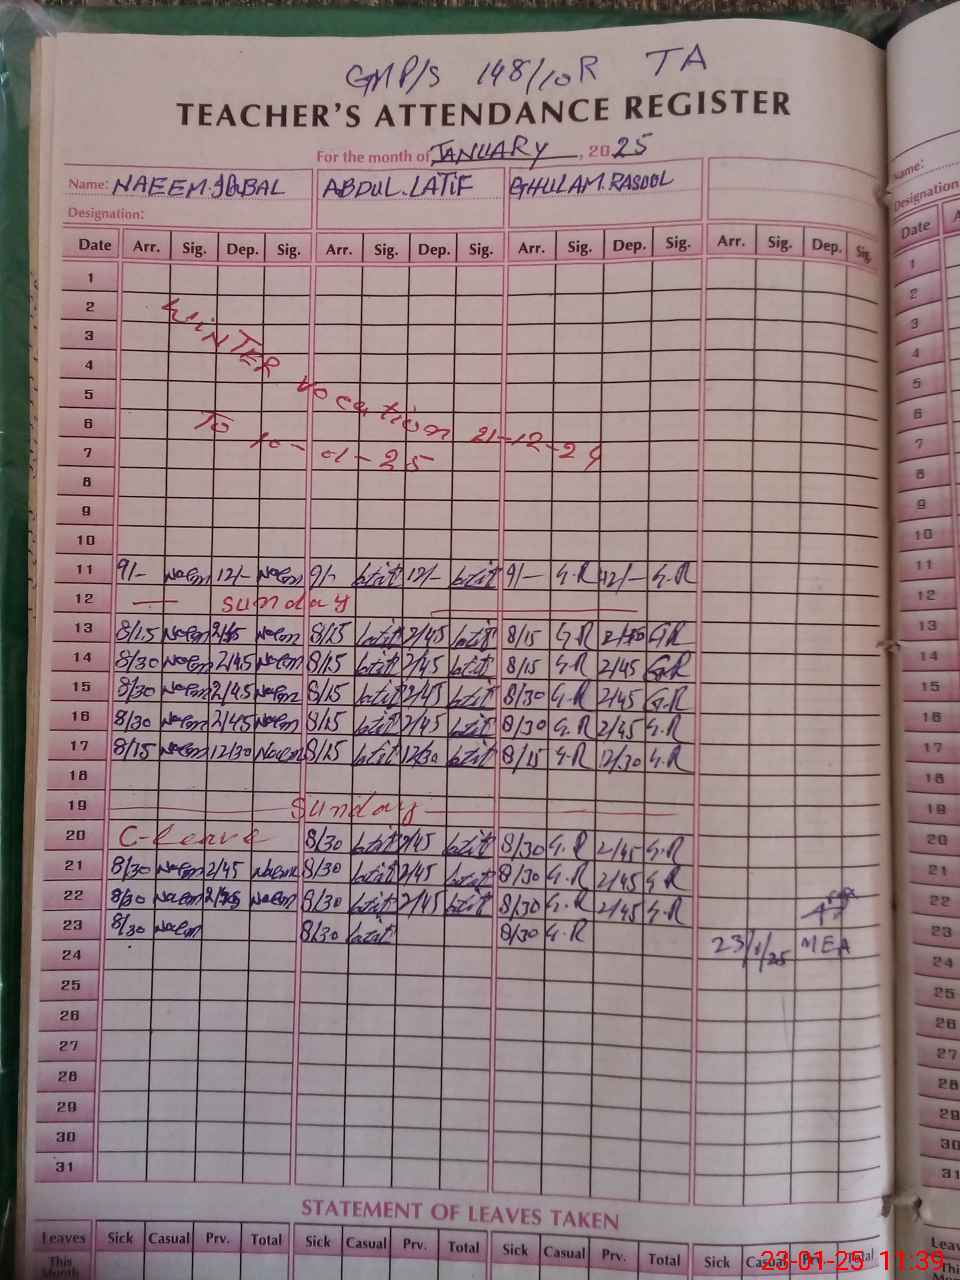 GMP/S 148/10R TA
TEACHER'S ATTENDANCE REGISTER
For the month of JANUARY, 2025
Name: NAEEM.IQBAL ABDUL.LATIF GHULAM.RASOOL
Designation:
Date Arr. Sig. Dep. Sig. Arr. Sig. Dep. Sig. Arr. Sig. Dep. Sig. Arr. Sig. Dep. Sig.
1
2
WINTER
3
4
5
vocation 21-12-24
6
To 10-01-25
7
8
9
10
11 9/- Naeem 12/- Naeem 9/- latif 12/- latif 9/- G.R 12/- G.R
12 Sunday
13 8/15 Naeem 2/45 Naeem 8/15 latif 2/45 latif 8/15 G.R GR
14 8/30 Naeem 2/45 Naeem 8/15 latif 2/45 latif 8/15 G.R 2/45 G.R
15 8/30 Naeem 2/45 Naeem 8/15 latif 2/45 latif 8/30 G.R 2/45 G.R
16 8/30 Naeem 2/45 Naeem 8/15 latif 2/45 latif 8/30 G.R 2/45 G.R
17 8/15 Naeem 12/30 Naeem 8/15 latif 12/30 latif 8/15 G.R 12/30 G.R
18
19 Sunday
20 C-leave 8/30 latif 2/45 latif 8/30 G.R 2/45 G.R
21 8/30 Naeem 2/45 Naeem 8/30 latif 2/45 latif 8/30 G.R 2/45 G.R
22 8/30 Naeem 2/45 Naeem 8/30 latif 2/45 latif 8/30 G.R 2/45 G.R
23 8/30 Naeem 8/30 latif 8/30 G.R 23/1/25 MEA
24
25
26
27
28
29
30
31
STATEMENT OF LEAVES TAKEN
Leaves Sick Casual Prv. Total Sick Casual Prv. Total Sick Casual Prv. Total Sick Casual Prv. Total
This
Month
23-01-25 11:39
Name:
Designation
Date
1
2
3
4
5
6
7
8
9
10
11
12
13
14
15
16
17
18
19
20
21
22
23
24
25
26
27
28
29
30
31